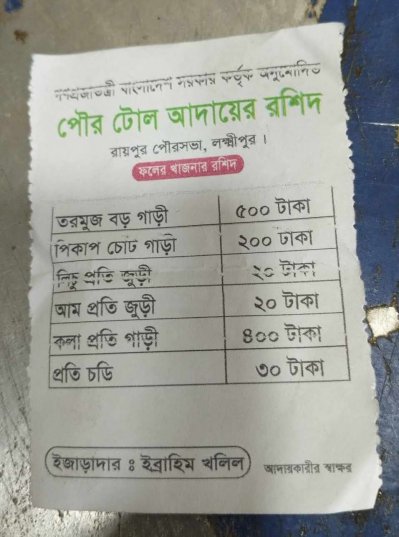 গণপ্রজাতন্ত্রী বাংলাদেশ সরকার কর্তৃক অনুমোদিত
পৌর টোল আদায়ের রশিদ
রায়পুর পৌরসভা, লক্ষ্মীপুর।
ফলের খাজনার রশিদ
তরমুজ বড় গাড়ী ৫০০ টাকা
পিকাপ ছোট গাড়ী ২০০ টাকা
লিচু প্রতি জুড়ী ২০ টাকা
আম প্রতি জুড়ী ২০ টাকা
কলা প্রতি গাড়ী ৪০০ টাকা
প্রতি চডি ৩০ টাকা
ইজাড়াদার ঃ ইব্রাহিম খলিল
আদায়কারীর স্বাক্ষর